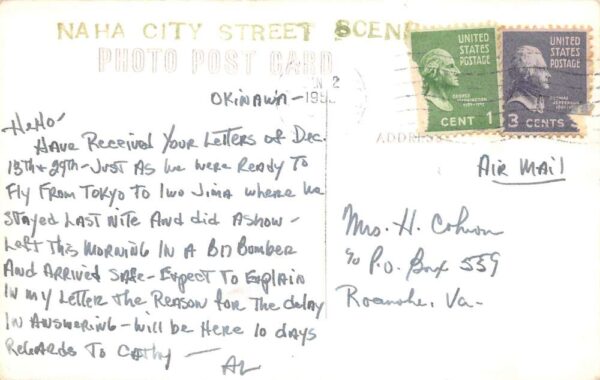 NAHA CITY STREET SCENE
PHOTO POST CARD
OKINAWA-
Hello-
Have Received Your Letters of Dec.
13th + 29th - Just As we were Ready To
Fly From Tokyo To Iwo Jima where we
Stayed Last Nite And did A show -
Left This Morning In A B17 Bomber
And Arrived Safe - Expect To Explain
In my Letter the Reason for the delay
In Answering - will be Here 10 days
Regards To Cathy -
AL
UNITED
STATES
POSTAGE
CENT 1
UNITED
STATES
POSTAGE
3 CENTS
ADDRESS
AIR MAIL
Mrs. H.
c/o P.O. Box 559
Roanoke, Va-